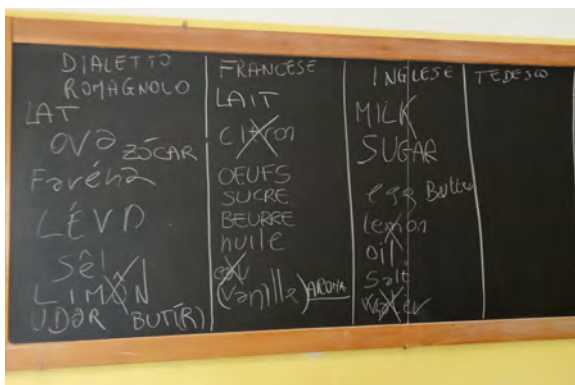 DIALETTO
ROMAGNOLO
LAT
OVƏ ZÓCAR
Favéna
LÉVD
Sêl
LIMON
UDƏR BUTÍ(R)
FRANCESE
LAIT
citron
OEUFS
SUCRE
BEURRE
huile
eau
(vanille) AROMA
INGLESE
MILK
SUGAR
egg Butter
lemon
oil
Salt
Water
TEDESCO